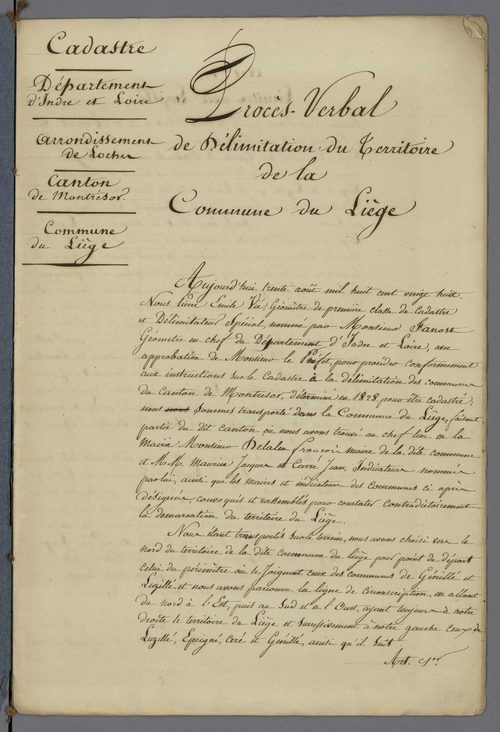 Cadastre
Département
d'Indre et Loire
Arrondissement
de Loches
Canton
de Montrésor
Commune
du Liège
Procès-Verbal
de Délimitation du Territoire
de la
Commune du Liège
Aujourd'hui trente août mil huit cent vingt huit
Nous Emile Géomètre de première classe du Cadastre
et Délimitateur Spécial, nommé par Monsieur
Géomètre en chef du Département d'Indre et Loire, avec
approbation de Monsieur le Préfet pour procéder conformément
aux instructions sur le Cadastre à la délimitation des communes
du Canton de Montresor, déterminé en 1828 pour être cadastré;
nous sommes transporté dans la Commune du Liège, faisant
partie du dit canton ou nous avons trouvé au chef lieu en la
Mairie Monsieur Delalen françois maire de la dite commune
et M.M. Maurice Jacques et Carré Jean, Indicateurs nommés
par lui, ainsi que les maires et indicateurs des Communes ci après
désignées, convoqués et rassemblés pour constater Contradictoirement
la démarcation du territoire du Liège.
Nous étant transportés sur le terrein, nous avons choisi vers le
nord du territoire de la dite commune du liège pour point de départ
celui du périmètre où se Joignent ceux des communes de Génillé et
Luzillé et nous avons parcouru la ligne de circonscription, en allant
du nord à l'Est, puis au Sud et a l'Ouest, ayant toujours à notre
droite le territoire du Liège et successivement à notre gauche ceux de
Luzillé, Epeigné, Céré et Génillé, ainsi qu'il suit
Art. 1er.